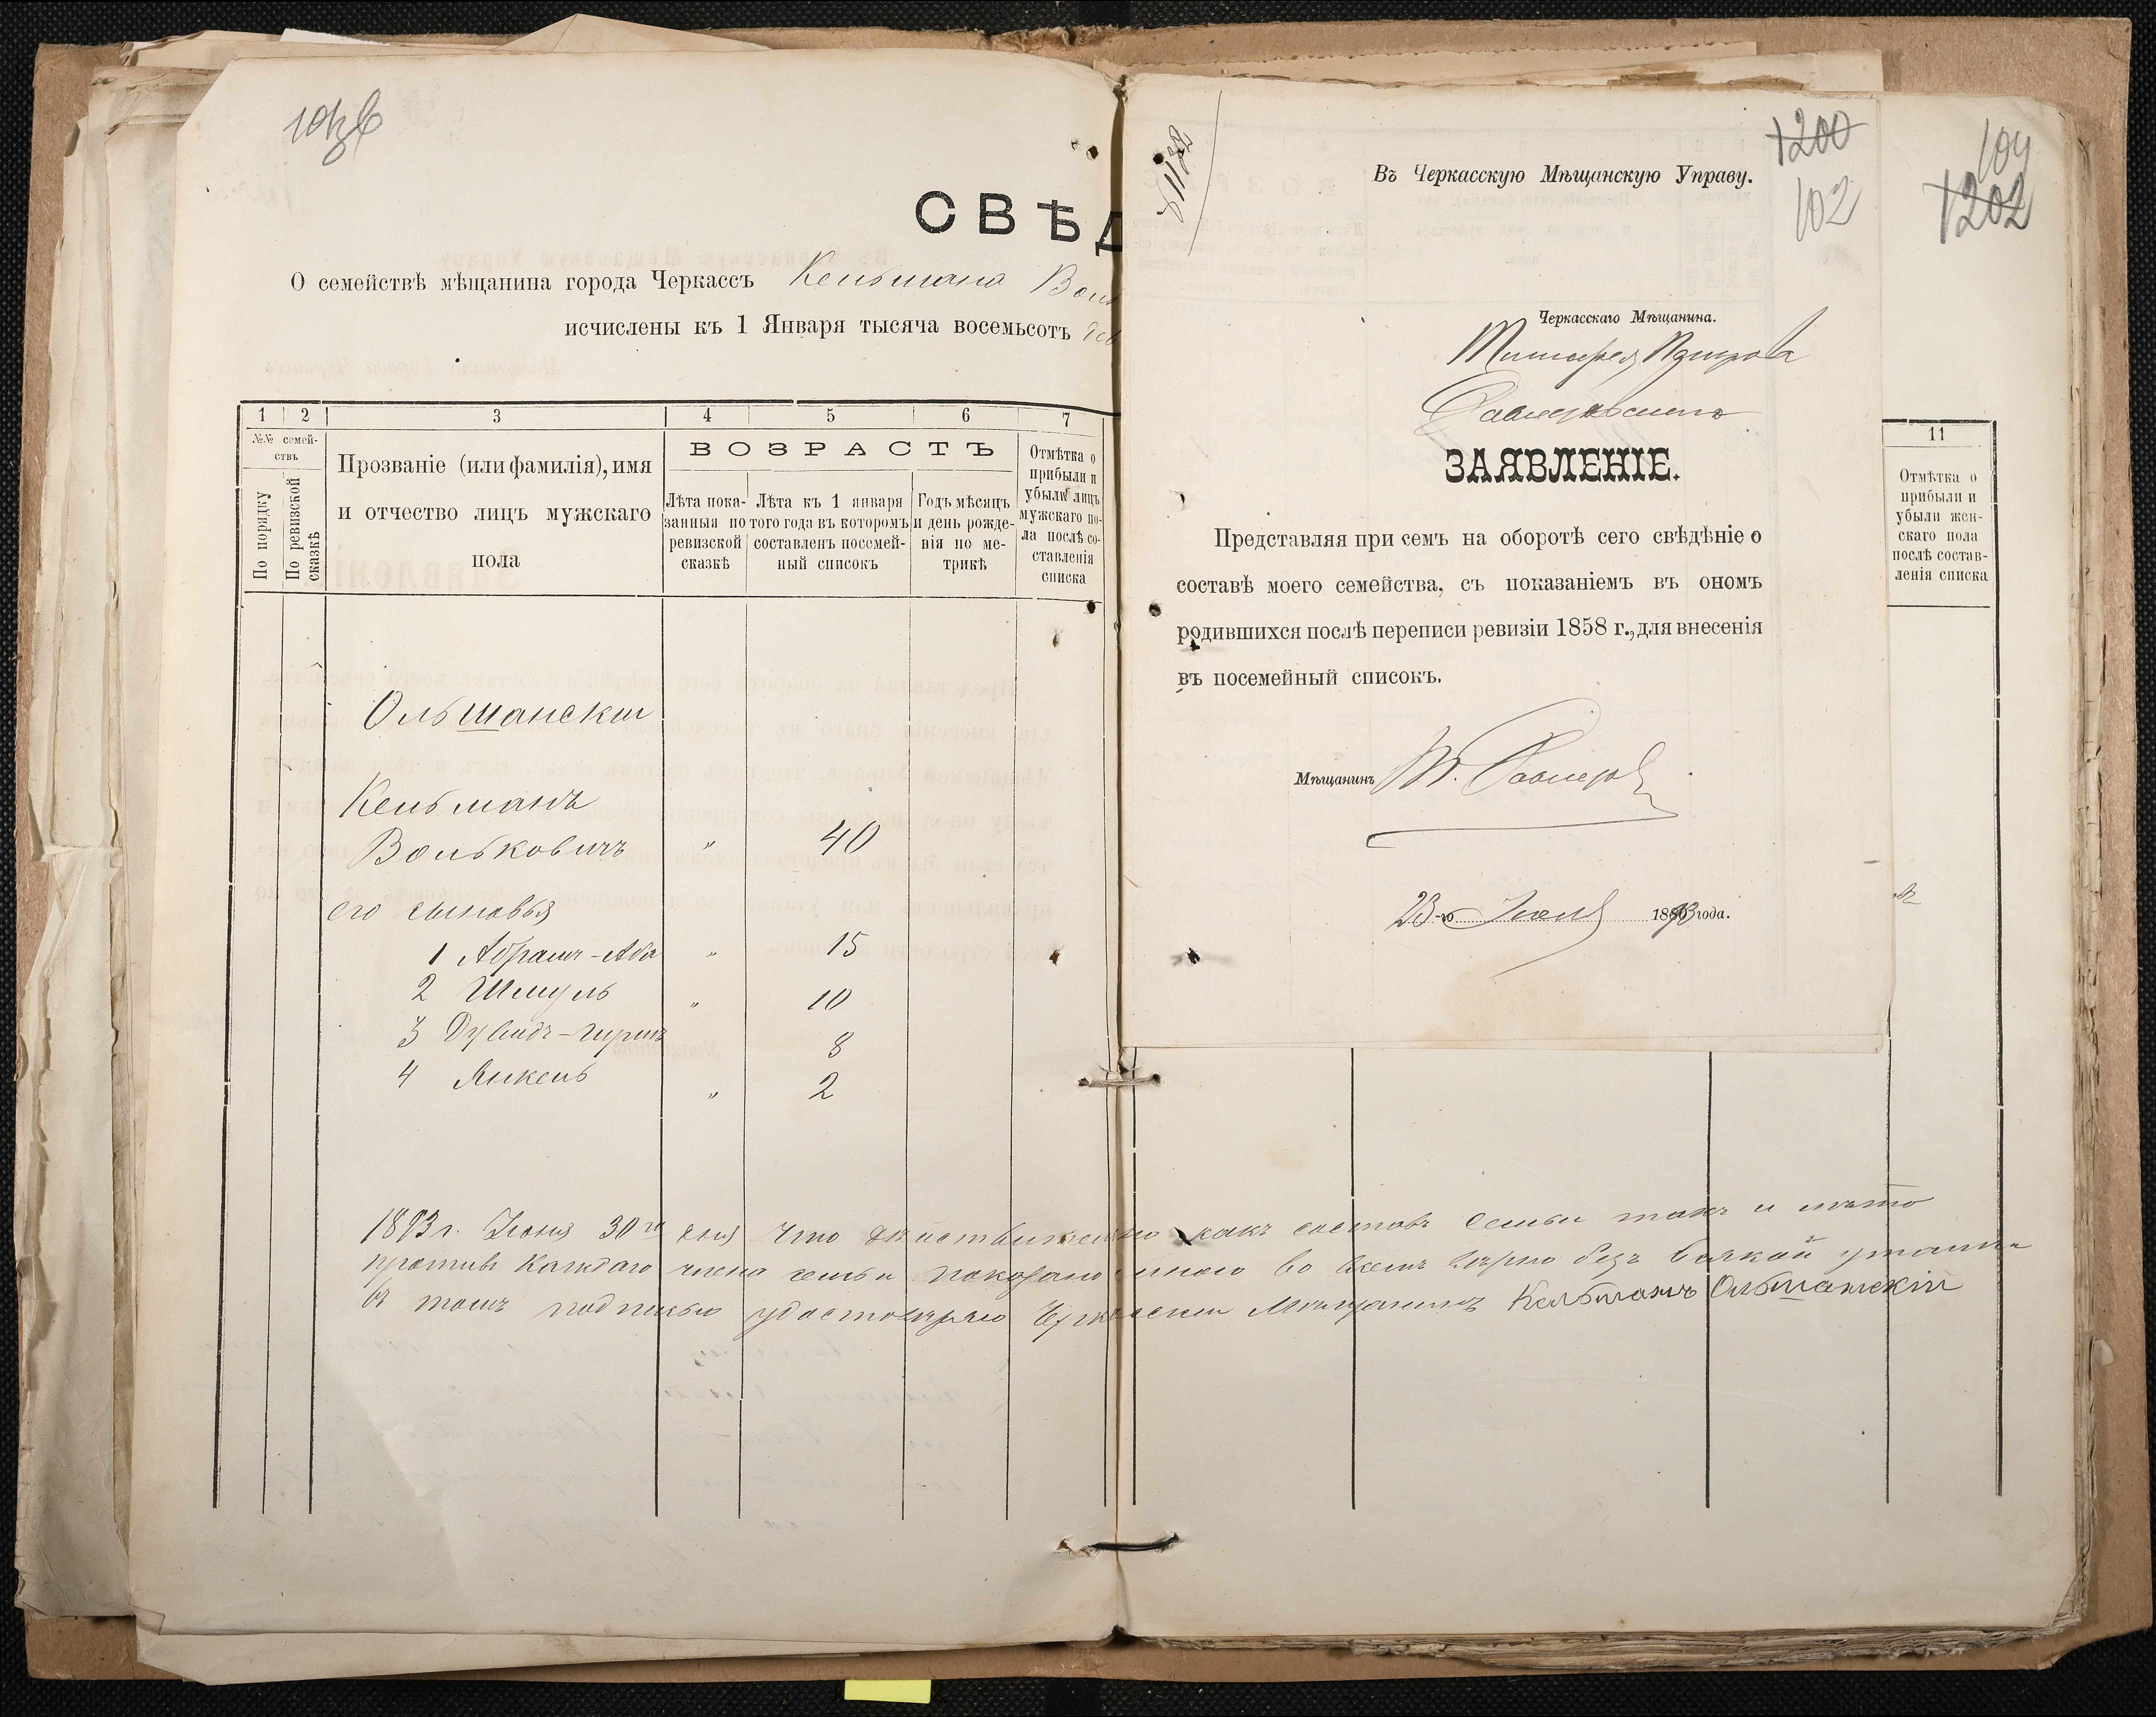 СВѢД
О семействѣ мѣщанина города Черкассъ Кельмана Воль
исчислены къ 1 Января тысяча восемьсотъ
1 2 3 4 5 6 7
№№ семей-
ствъ
По порядку
По ревизской
сказкѣ
Прозваніе (или фамилія), имя
и отчество лицъ мужскаго
пола
ВОЗРАСТЪ
Лѣта пока-
занныя по
ревизской
сказкѣ
Лѣта къ 1 января
того года въ котором
составленъ посемей-
ный списокъ
Годъ мѣсяцъ
и день рожде-
нія по ме-
трикѣ
Отмѣтка о
прибыли и
убыли лицъ
мужскаго по-
ла послѣ со-
ставленія
списка
Ольшанскій
Кельманъ
Вольковичъ " 40
его сыновья
1 Абрамъ-Аба " 15
2 Шмуль " 10
3 Дувидъ- 8
4 Янкель " 2
1893 г. Іюня 30го дня что дѣйствительно какъ составъ семьи такъ и лѣта
противъ каждаго члена семьи показано мною во всемъ вѣрно безъ всякой утайки
въ томъ подписью удостовѣряю Черкасскій Мѣщанинъ Кельманъ Ольшанскій
1200
102
Въ Черкасскую Мѣщанскую Управу.
Черкасскаго Мѣщанина.
ЗАЯВЛЕНІЕ.
Представляя при семъ на оборотѣ сего свѣдѣніе о
составѣ моего семейства, съ показаніемъ въ ономъ
родившихся послѣ переписи ревизіи 1858 г., для внесенія
въ посемейный списокъ.
Мѣщанинъ
23-го 1893 года.
104
1202
11
Отмѣтка о
прибыли и
убыли жен-
скаго пола
послѣ состав-
ленія списка